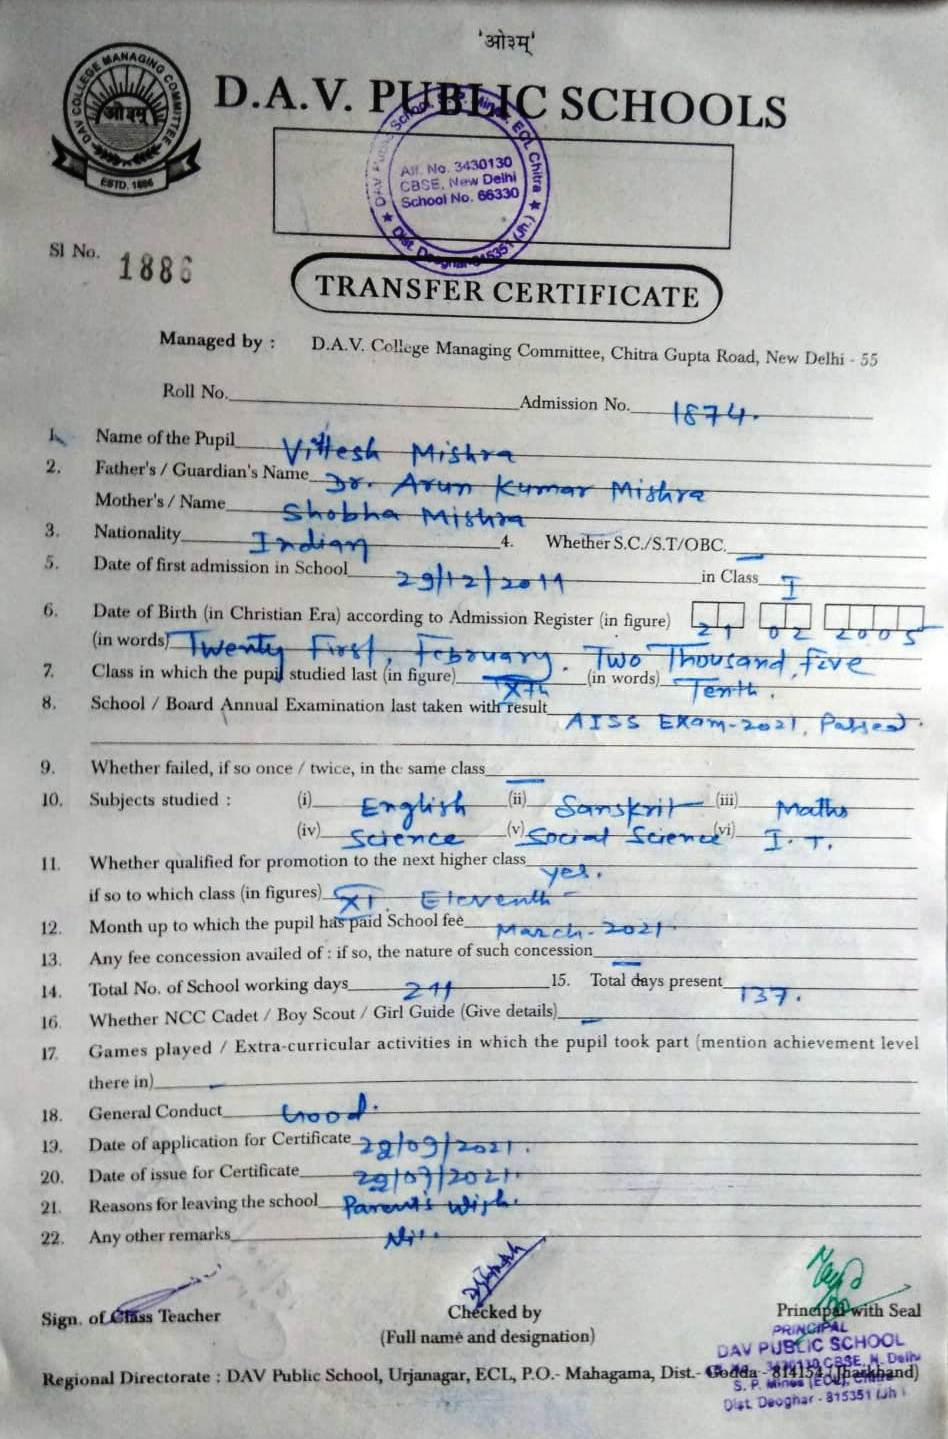 'ओ३म्'
DAV COLLEGE MANAGING COMMITTEE
ओ३म्
ESTD. 1886
D.A.V. PUBLIC SCHOOLS
DAV Public School, S.P. Mines, ECL Chitra
Aff. No. 3430130
CBSE, New Delhi
School No. 66330
Dist. Deoghar-815351 (Jh.)
Sl No. 1886
TRANSFER CERTIFICATE
Managed by : D.A.V. College Managing Committee, Chitra Gupta Road, New Delhi - 55
Roll No. Admission No. 1874.
1. Name of the Pupil Mishra
2. Father's / Guardian's Name Dr. Arun Kumar Mishra
Mother's / Name Shobha Mishra
3. Nationality Indian 4. Whether S.C./S.T/OBC. —
5. Date of first admission in School 29/12/2011 in Class I
6. Date of Birth (in Christian Era) according to Admission Register (in figure) 21 02 2005
(in words) Twenty First, February. Two Thousand five
7. Class in which the pupil studied last (in figure) Xth (in words) Tenth.
8. School / Board Annual Examination last taken with result AISS Exam-2021, Passed.
9. Whether failed, if so once / twice, in the same class —
10. Subjects studied : (i) English (ii) Sanskrit (iii) Maths
(iv) Science (v) Social Science (vi) I.T.
11. Whether qualified for promotion to the next higher class yes.
if so to which class (in figures) XI. Eleventh
12. Month up to which the pupil has paid School fee March-2021.
13. Any fee concession availed of : if so, the nature of such concession —
14. Total No. of School working days 211 15. Total days present 137.
16. Whether NCC Cadet / Boy Scout / Girl Guide (Give details) —
17. Games played / Extra-curricular activities in which the pupil took part (mention achievement level
there in) —
18. General Conduct Good.
19. Date of application for Certificate
20. Date of issue for Certificate
21. Reasons for leaving the school Parent's Wish.
22. Any other remarks Nil.
Sign. of Class Teacher Checked by Principal with Seal
(Full name and designation)
PRINCIPAL
DAV PUBLIC SCHOOL
3430130 CBSE, N. Delhi
Regional Directorate : DAV Public School, Urjanagar, ECL, P.O.- Mahagama, Dist.- Godda - 814154 (Jharkhand)
S. P. Mines (ECL), Chitra
Dist. Deoghar - 815351 (Jh.)